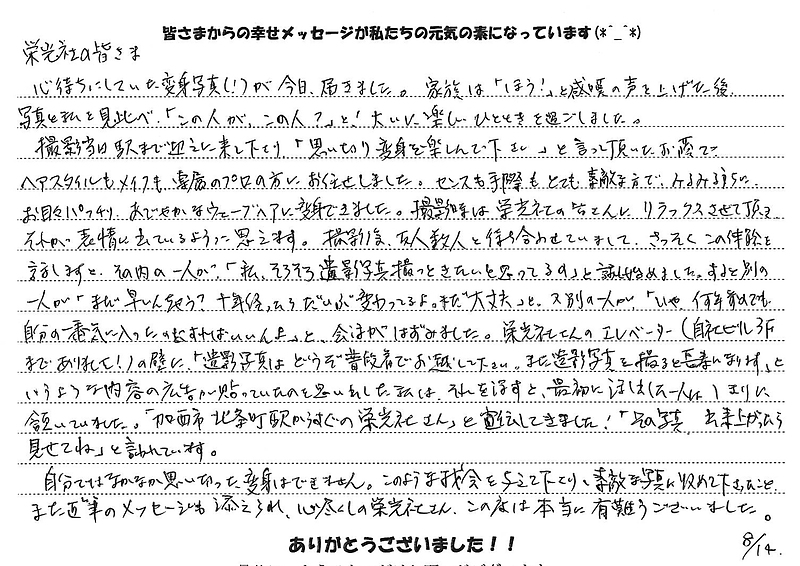 皆さまからの幸せメッセージが私たちの元気の素になっています(*^_^*)
栄光社の皆さま
心待ちにしていた変身写真(!)が今日、届きました。家族は「ほう!」と感嘆の声を上げた後、
写真と私と見比べ、「この人が、この人?」と!大いに楽しいひとときを過ごしました。
撮影当日駅まで迎えに来て下さり、「思い切り変身を楽しんで下さい」と言って頂いたお蔭で
ヘアスタイルもメイクも、専属のプロの方にお任せしました。センスも手際もとても素敵な方で、みるみるうちに
お目々パッチリ、あでやかなウェーブヘアに変身できました。撮影時は栄光社の皆さんに、リラックスさせて頂き
それが表情に出ているように思えます。撮影後、友人数人と待ち合わせていまして、さっそくこの体験を
話しますと、その内の一人が、「私、そろそろ遺影写真撮っときたいと思ってるの」と話し始めました。すると別の
一人が「まだ早いんちゃう?十年経ったらだいぶ変わってるよ。まだ大丈夫」と、又別の一人が、「いや、何年前でも
自分の一番気に入ったのを出せばいいんよ」と、会話がはずみました。栄光社さんのエレベーター(自社ビル3F
までありまして!)の壁に、「遺影写真は どうぞ普段着でお越し下さい。また遺影写真を撮ると長寿になります」と
いうような内容の広告が貼っていたのを思い出した私は、それを話すと、最初に話した一人は、しきりに
頷いていました。「加西市 北条町駅からすぐの栄光社さん」と宣伝してきました!「その写真、出来上がったら
見せてね」と言われています。
自分ではなかなか思い切った変身はできません。このような機会を与えて下さり、素敵な写真に収めて下さったこと、
また直筆のメッセージも添えられ、心尽くしの栄光社さん、この度は本当に有難うございました。
ありがとうございました!!
8/14.